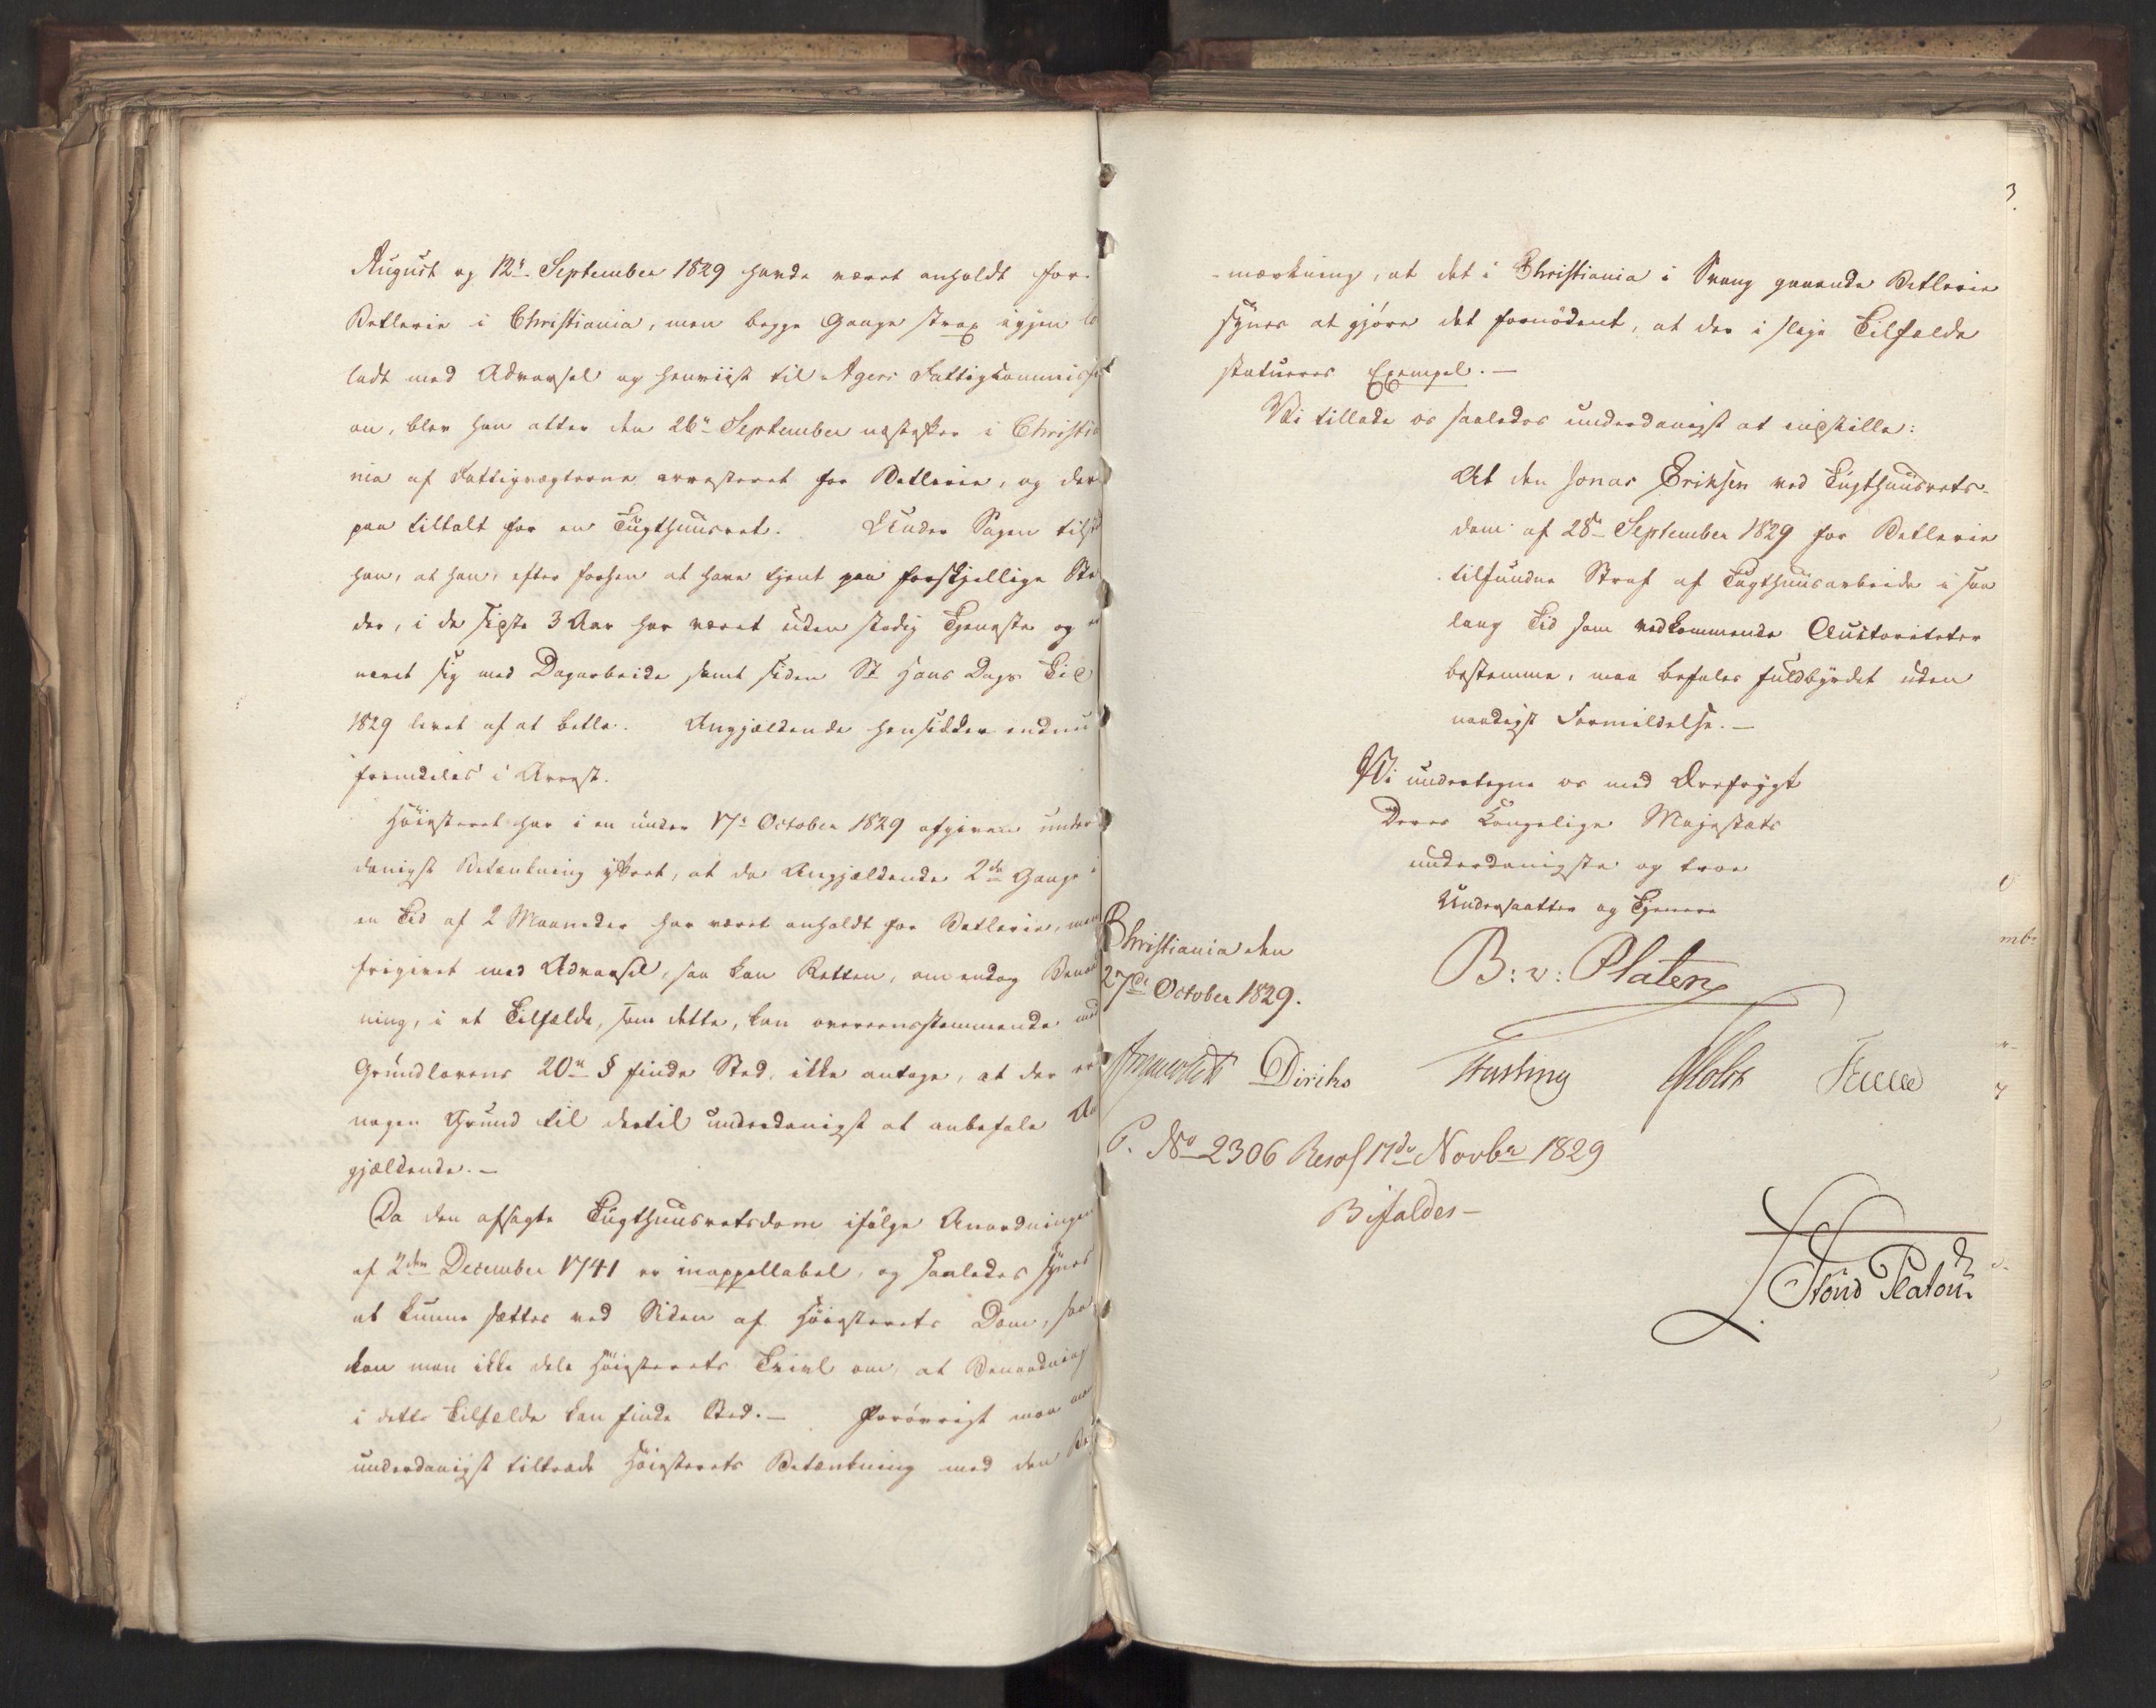 August og 12te September 1829 havde været anholdt for
Betlerie i Christiania, men begge Gange strax igjen lø
ladt med Advarsel og henviist til Agers Fattigkommissi
on, blev han atter den 26de September næstefter i Christia
nia af Fattigvægterne arresteret for Betlerie, og der
paa tiltalt for en Tugthuusret. Under Sagen tilstod
han, at han, efter forhen at have tjent paa forskjellige Ste
der, i de sidste 3 Aar har været uden stadig Tjeneste og er
næret sig med Dagarbeide samt siden St Hans Dags Tid
1829 levet af at betle. Angjældende hensidder endnu
fremdeles i Arrest.
Høiesteret har i en under 17de October 1829 afgiven under
danigst Betænkning yttret, at da Angjældende 2de Gange i
en Tid af 2 Maaneder har været anholdt for Betlerie, men
frigivet med Advarsel, saa kan Retten, om endog Benaad
ning, i et Tilfælde, som dette, kan overeensstemmende med
Grundlovens 20de § finde Sted, ikke antage, at der er
nogen Grund til dertil underdanigst at anbefale An
gjældende.—
Da den afsagte Tugthuusretsdom ifølge Anordningen
af 2den December 1741 er inappellabel, og saaledes synes
at kunne sættes ved Siden af Høiesterets Dom, saa
kan man ikke dele Høiesterets Tvivl om, at Benaadning
i dette Tilfælde kan finde Sted.— Forøvrigt maa man
underdanigst tiltræde Høiesterets Betænkning med den Be
3.
-mærkning, at det i Christiania i Svang gaaende Betlerie
synes at gjøre det fornødent, at der i slige Tilfælde
statueres Exempel.—
Vi tillade os saaledes underdanigst at indstille:
At den Jonas Eriksen ved Tugthuusrets-
dom af 28de September 1829 for Betlerie
tilfundne Straf af Tugthuusarbeide i saa
lang Tid som vedkommende Auctoriteter
bestemme, maa befales fuldbyrdet uden
naadigst Formildelse.—
Vi undertegne os med Ærefrygt
Deres Kongelige Majestæts
underdanigste og troe
Undersaatter og Tjenere
Christiania den
27de October 1829.
B: v: Platen
Diriks Fasting Holst
P. No 2306 Resol 17de Novbr 1829
Bifaldes—